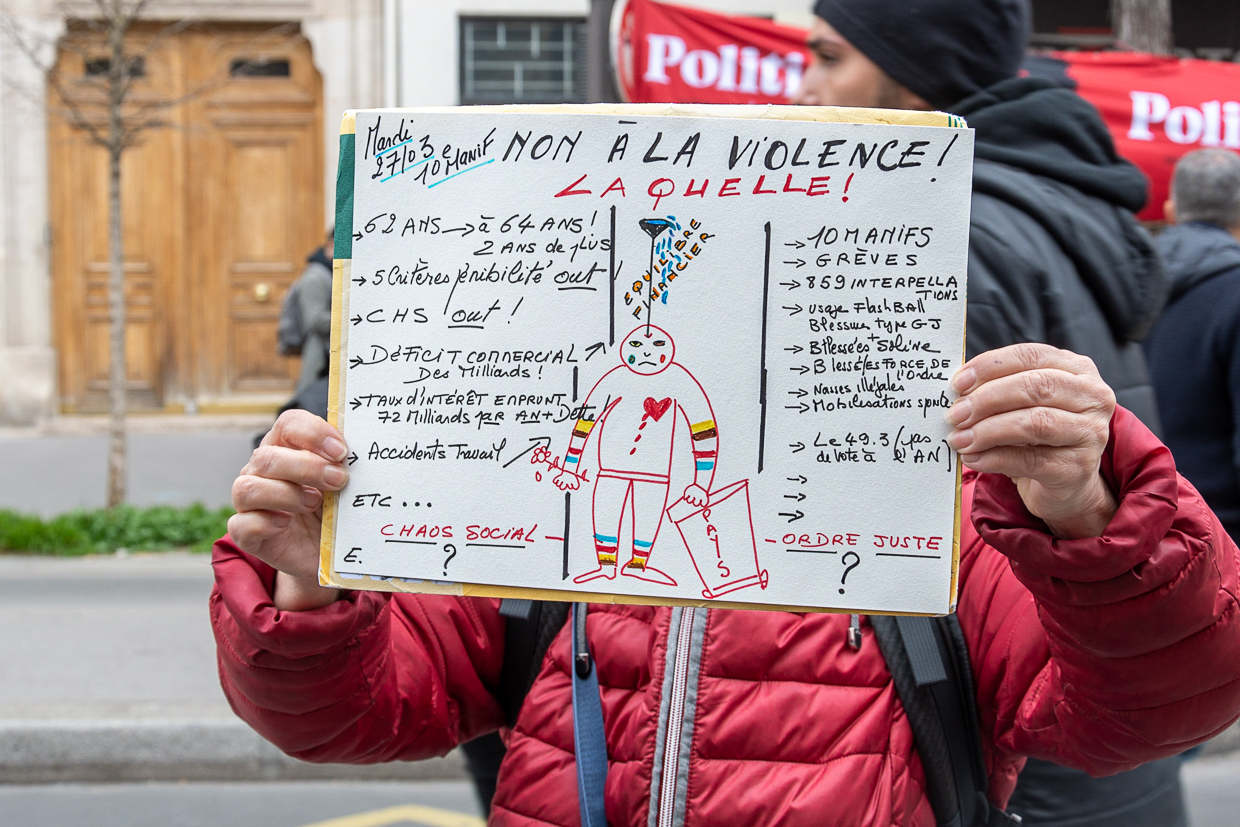 Politi
Poli
Mardi
27/03
10e Manif
NON À LA VIOLENCE !
LAQUELLE !
→ 62 ANS → à 64 ANS !
2 ANS de plus
→ 5 Critères pénibilité out !
→ CHS out !
→ DÉFICIT COMMERCIAL
Des Milliards !
→ TAUX d'INTÉRÊT EMPRUNT
72 Milliards par AN + Dette !
→ Accidents Travail
ETC ...
CHAOS SOCIAL
?
E.
EQUILIBRE
→ 10 MANIFS
→ GRÈVES
→ 859 INTERPELLA
TIONS
→ usage FlashBall
Blessures type GJ
→ Blessé es + Soline
→ Blessé/es FORCE DE
l'Ordre
→ Nasses illégales
→ Mobilisations
→ Le 49.3 (pas
de vote à l'AN)
→
→
→
ORDRE JUSTE
?